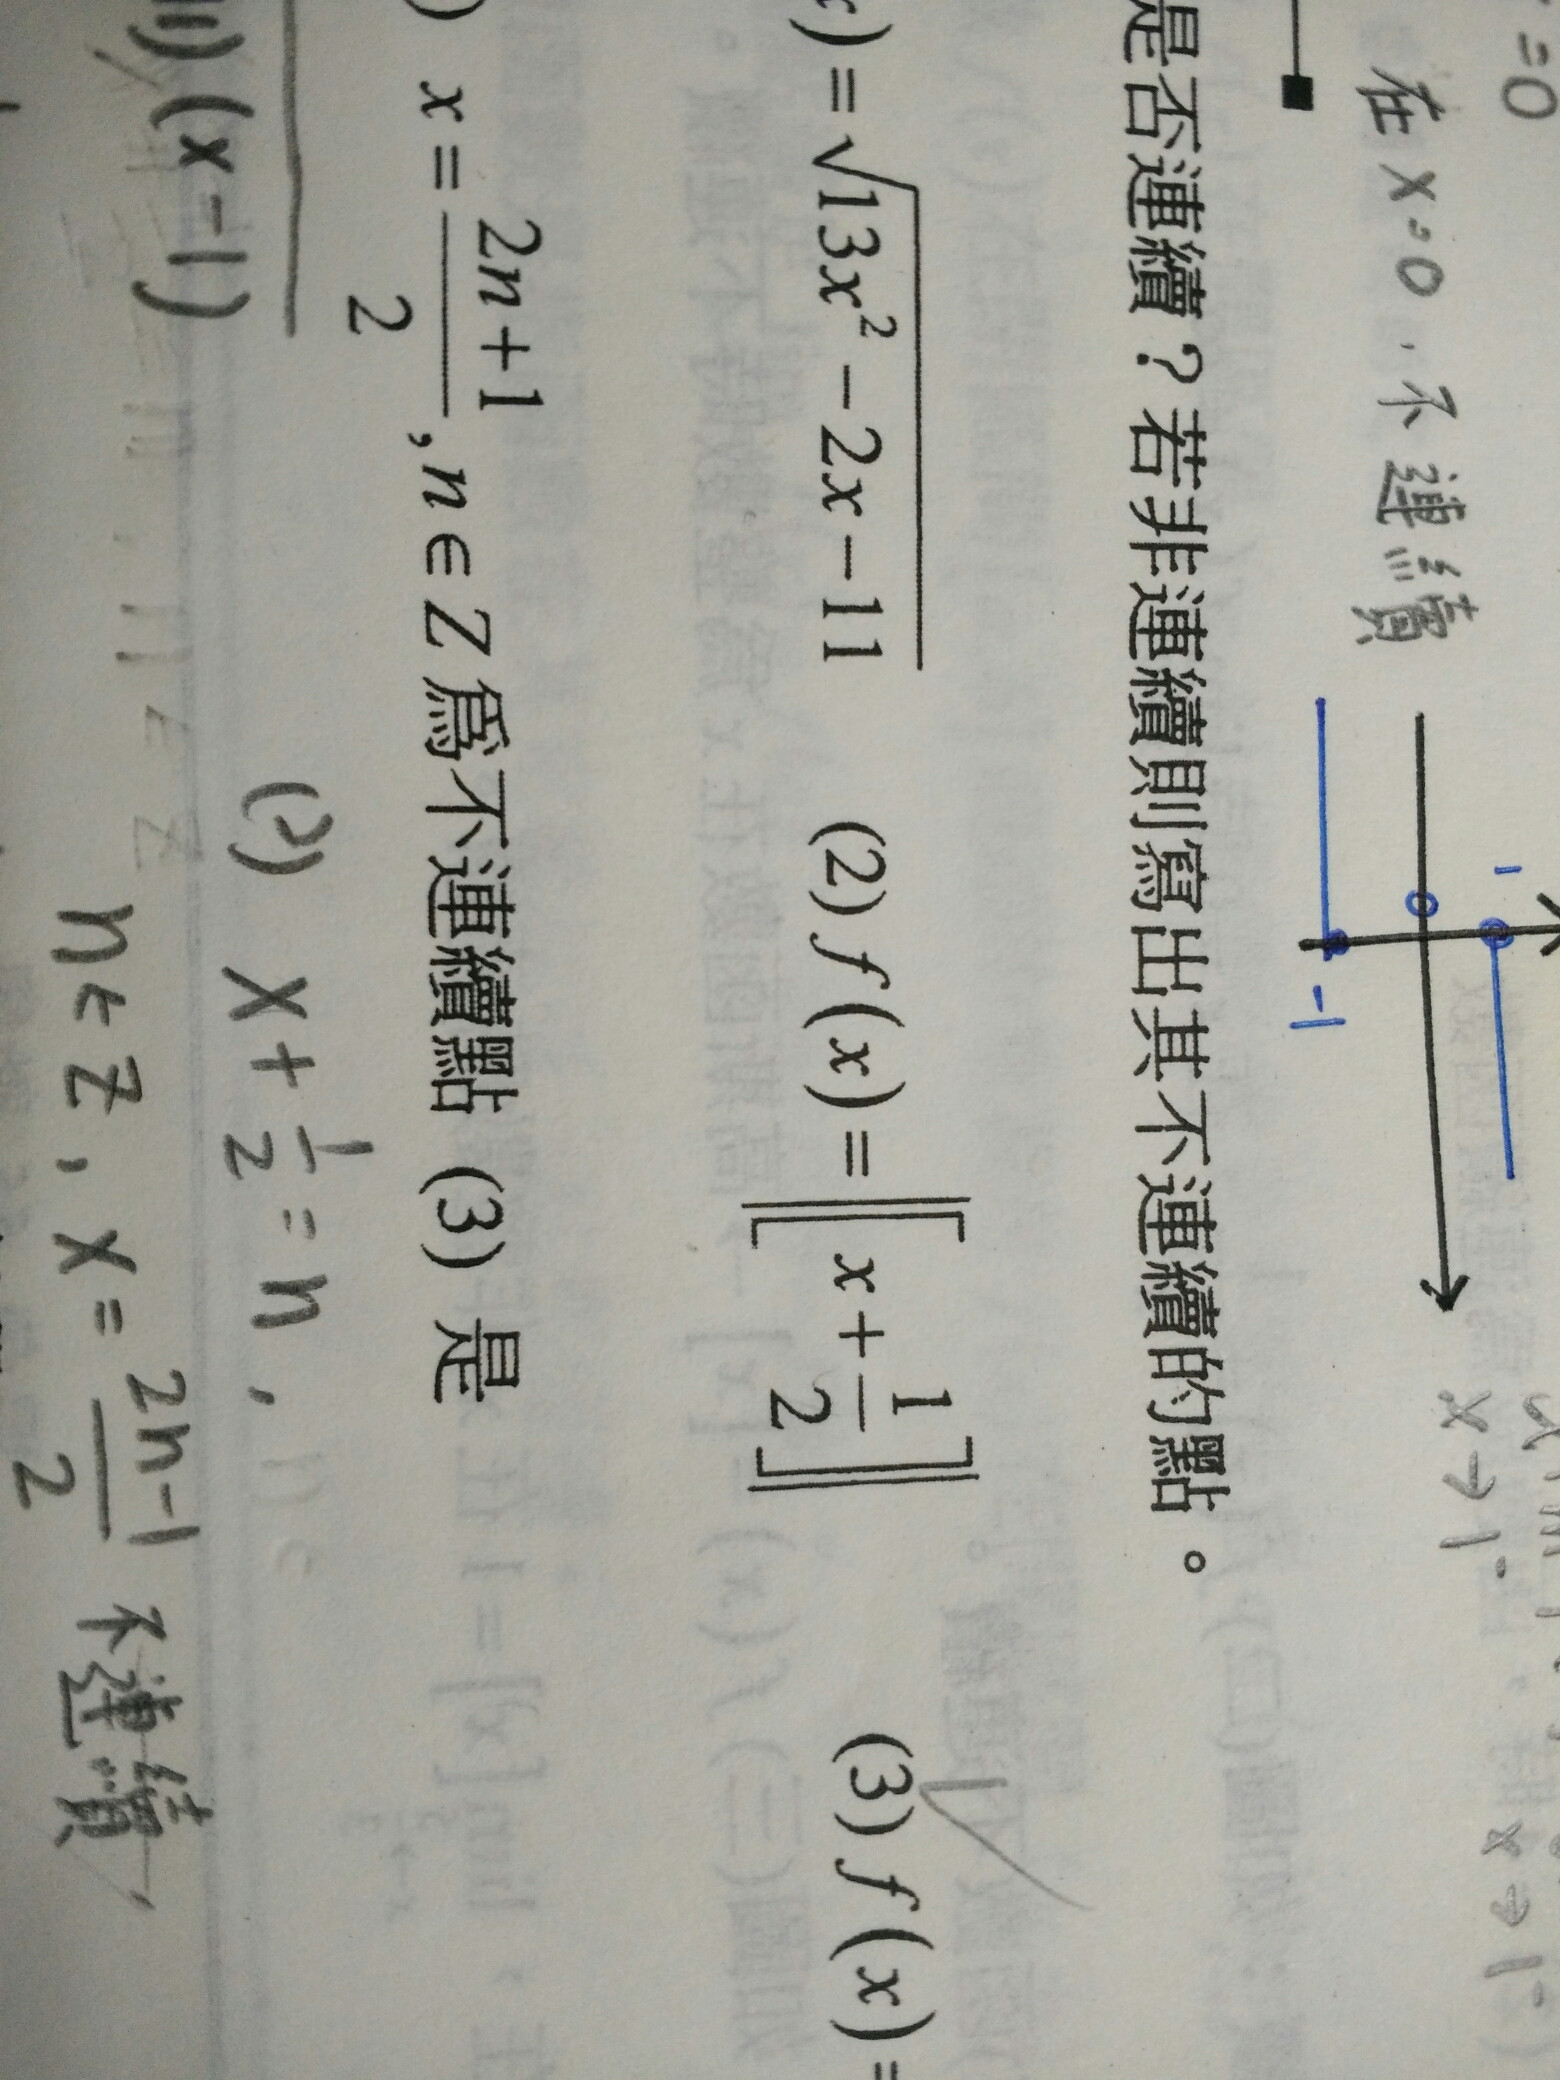 =0
在 x=0, 不連續
1
-1
x→1⁻
x→1⁻
是否連續？若非連續則寫出其不連續的點。
) = √(13x² - 2x - 11) (2) f(x) = ⟦x + 1/2⟧ (3) f(x) =
) x = (2n+1)/2, n ∈ Z 為不連續點 (3) 是
(x-1)
(2) x + 1/2 = n,
n ∈ Z, x = (2n-1)/2 不連續